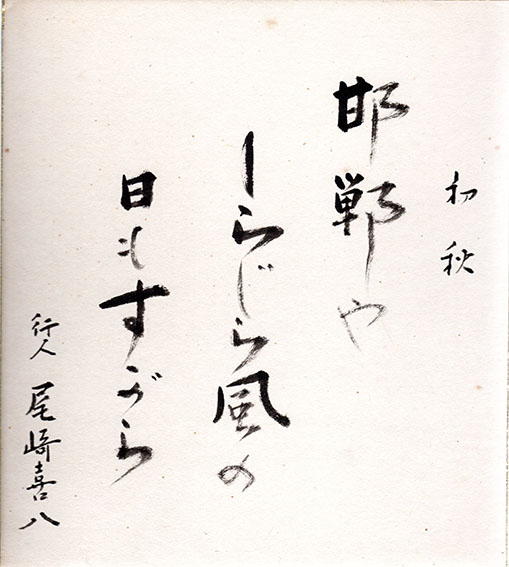 初秋
邯鄲や
しらじら風の
日もすがら
行人 尾崎喜八